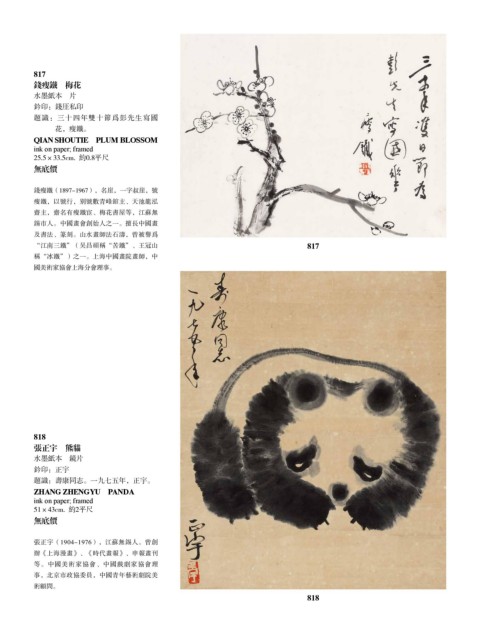 817
錢瘦鐵　梅花
水墨紙本　片
鈐印：錢厓私印
題識：三十四年雙十節爲彭先生寫國
花，瘦鐵。
QIAN SHOUTIE　PLUM BLOSSOM
ink on paper; framed
25.5 × 33.5cm.  約0.8平尺
無底價
錢瘦鐵（1897-1967），名厓，一字叔厓，號
瘦鐵，以號行，別號數青峰館主、天池龍泓
齋主，齋名有瘦鐵宧、梅花書屋等，江蘇無
錫市人。中國畫會創始人之一。擅長中國畫
及書法、篆刻。山水畫師法石濤，曾被譽爲
“江南三鐵”（吳昌碩稱“苦鐵”、王冠山
稱“冰鐵”）之一。上海中國畫院畫師，中
國美術家協會上海分會理事。
三十四年雙日節為
彭先生寫國花
瘦鐵
817
壽康同志
一九七五年
正宇
818
張正宇　熊貓
水墨紙本　鏡片
鈐印：正宇
題識：壽康同志。一九七五年，正宇。
ZHANG ZHENGYU　PANDA
ink on paper; framed
51 × 43cm.  約2平尺
無底價
張正宇（1904-1976），江蘇無錫人。曾創
辦《上海漫畫》、《時代畫報》、申報畫刊
等。中國美術家協會、中國戲劇家協會理
事，北京市政協委員，中國青年藝術劇院美
術顧問。
818